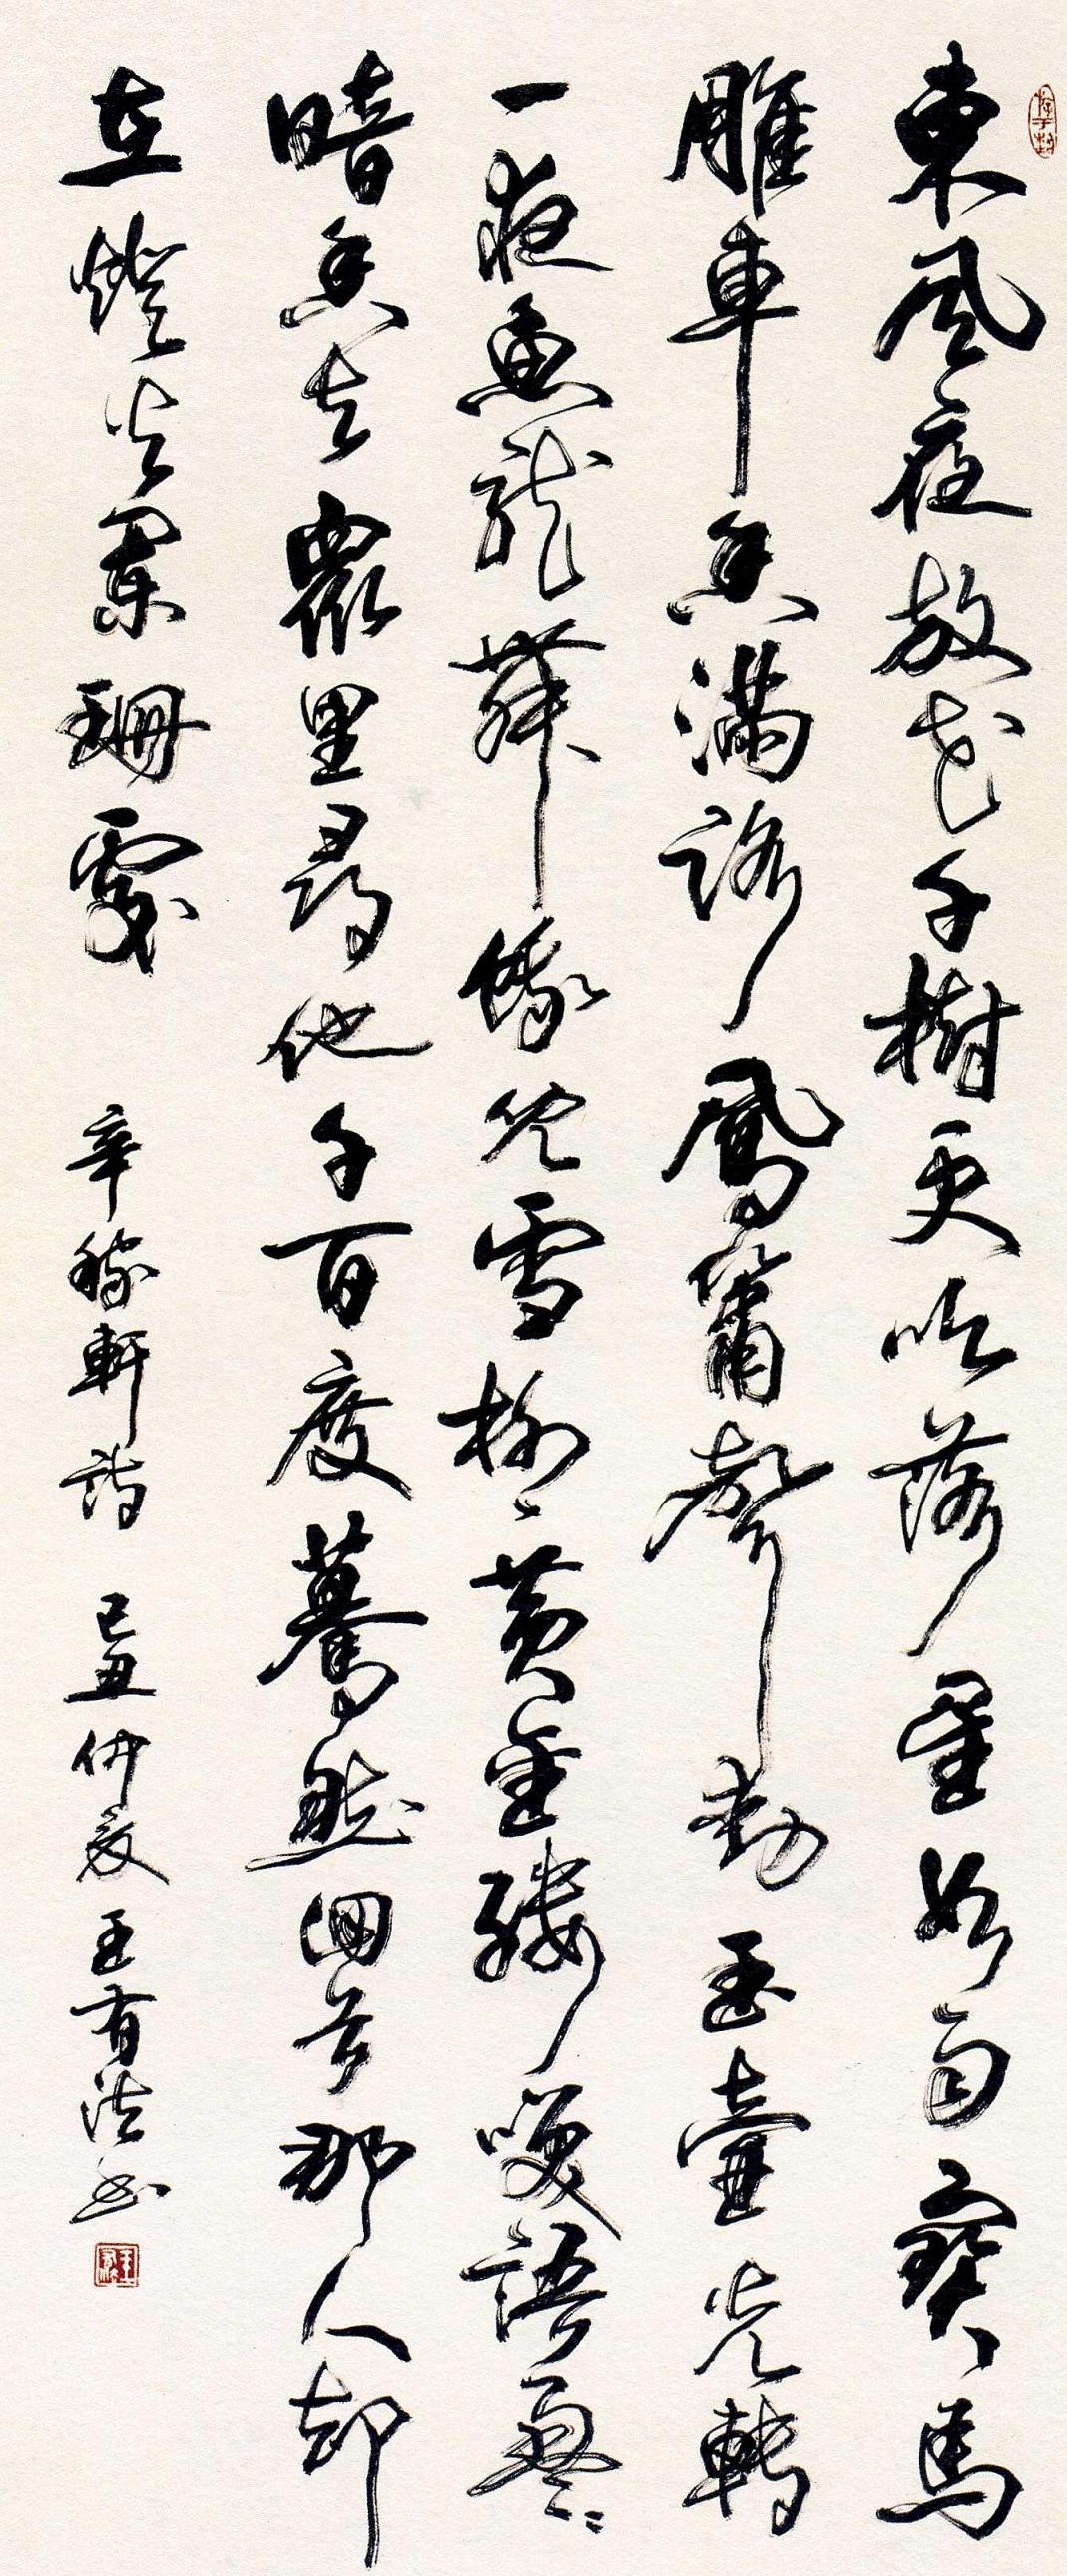 東風夜放花千樹更吹落星如雨寶馬
雕車香滿路鳳簫聲動玉壺光轉
一夜魚龍舞蛾兒雪柳黃金縷咲語盈〻
暗香去眾里尋他千百度驀然囬首那人却
在燈火闌珊處 辛稼軒詩 己丑仲夏 王有法书